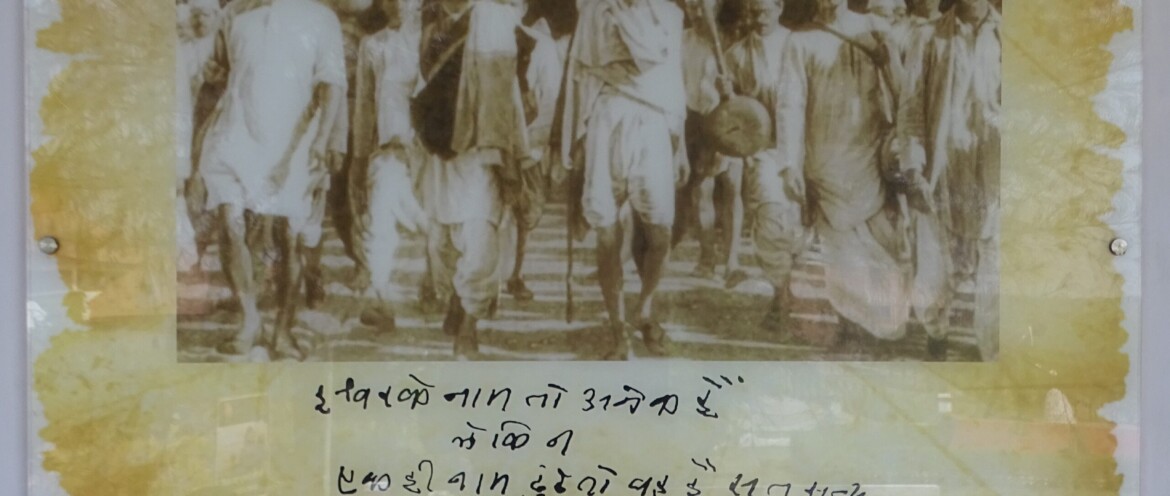 ईश्वरके नाम तो अनेक हैं
लेकिन
एक ही नाम ढुंढें तो वह है